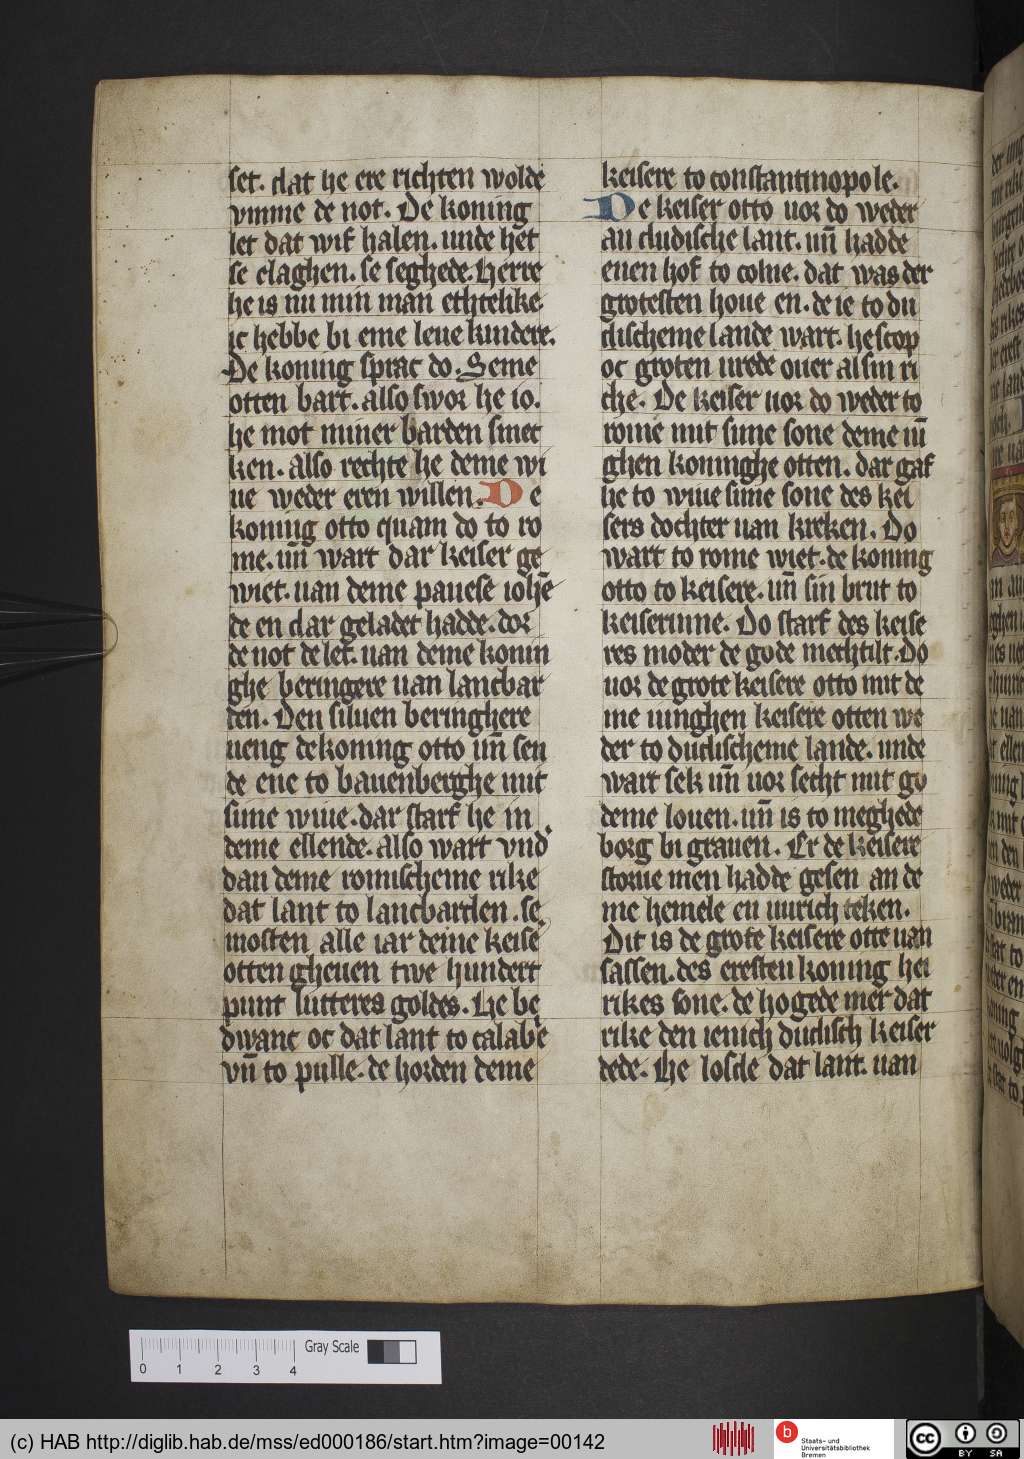 set. dat he ere richten wolde
vmme de not. De koning
let dat wif halen. unde het
se claghen. se seghede. Herre
he is nu min man echtelike.
ic hebbe bi eme leue kindere.
De koning sprac do. Seme
otten bart. also swor he io.
he mot miner barden smec
ken. also rechte he deme wi
ue weder eren willen. De
koning otto quam do to ro
me. uñ wart dar keiser ge
wiet. uan deme pauese iohē
de en dar geladet hadde. dor
de not de let. uan deme konin
ghe beringere uan lancbar
den. Den siluen beringhere
ueng de koning otto uñ sen
de ene to bauenberghe mit
sime wiue. dar starf he in
deme ellende. also wart vnd
dan deme romischeme rike
dat lant to lancbarden. se
mosten alle iar deme keise
otten gheuen twe hundert
punt lutteres goldes. He be
dwanc oc dat lant to calabe
vñ to pulle. de horden deme
keisere to constantinopole.
De keiser otto uor do weder
an dudische lant. uñ hadde
enen hof to colne. dat was der
grotesten houe en. de ie to du
discheme lande wart. he scop
oc groten urede ouer al sin ri
che. De keiser uor do weder to
rome mit sime sone deme iu
ghen koninghe otten. dar gaf
he to wiue sime sone des kei
sers dochter uan kreken. Do
wart to rome wiet. de koning
otto to keisere. uñ sin brut to
keiserinne. Do starf des keise
res moder de gode mechtilt. Do
uor de grote keisere otto mit de
me iunghen keisere otten we
der to dudischeme lande. unde
wart sek uñ uor secht mit go
deme louen. uñ is to meghede
borg bi grauen. Er de keisere
storue men hadde gesen an de
me hemele en uurich teken.
Dit is de grote keisere otte uan
sassen. des eresten koning hei
rikes sone. de hogede mer dat
rike den ienich dudisch keiser
dede. He losde dat lant. uan
Gray Scale
0 1 2 3 4
(c) HAB http://diglib.hab.de/mss/ed000186/start.htm?image=00142
Staats- und
Universitätsbibliothek
Bremen
cc BY SA